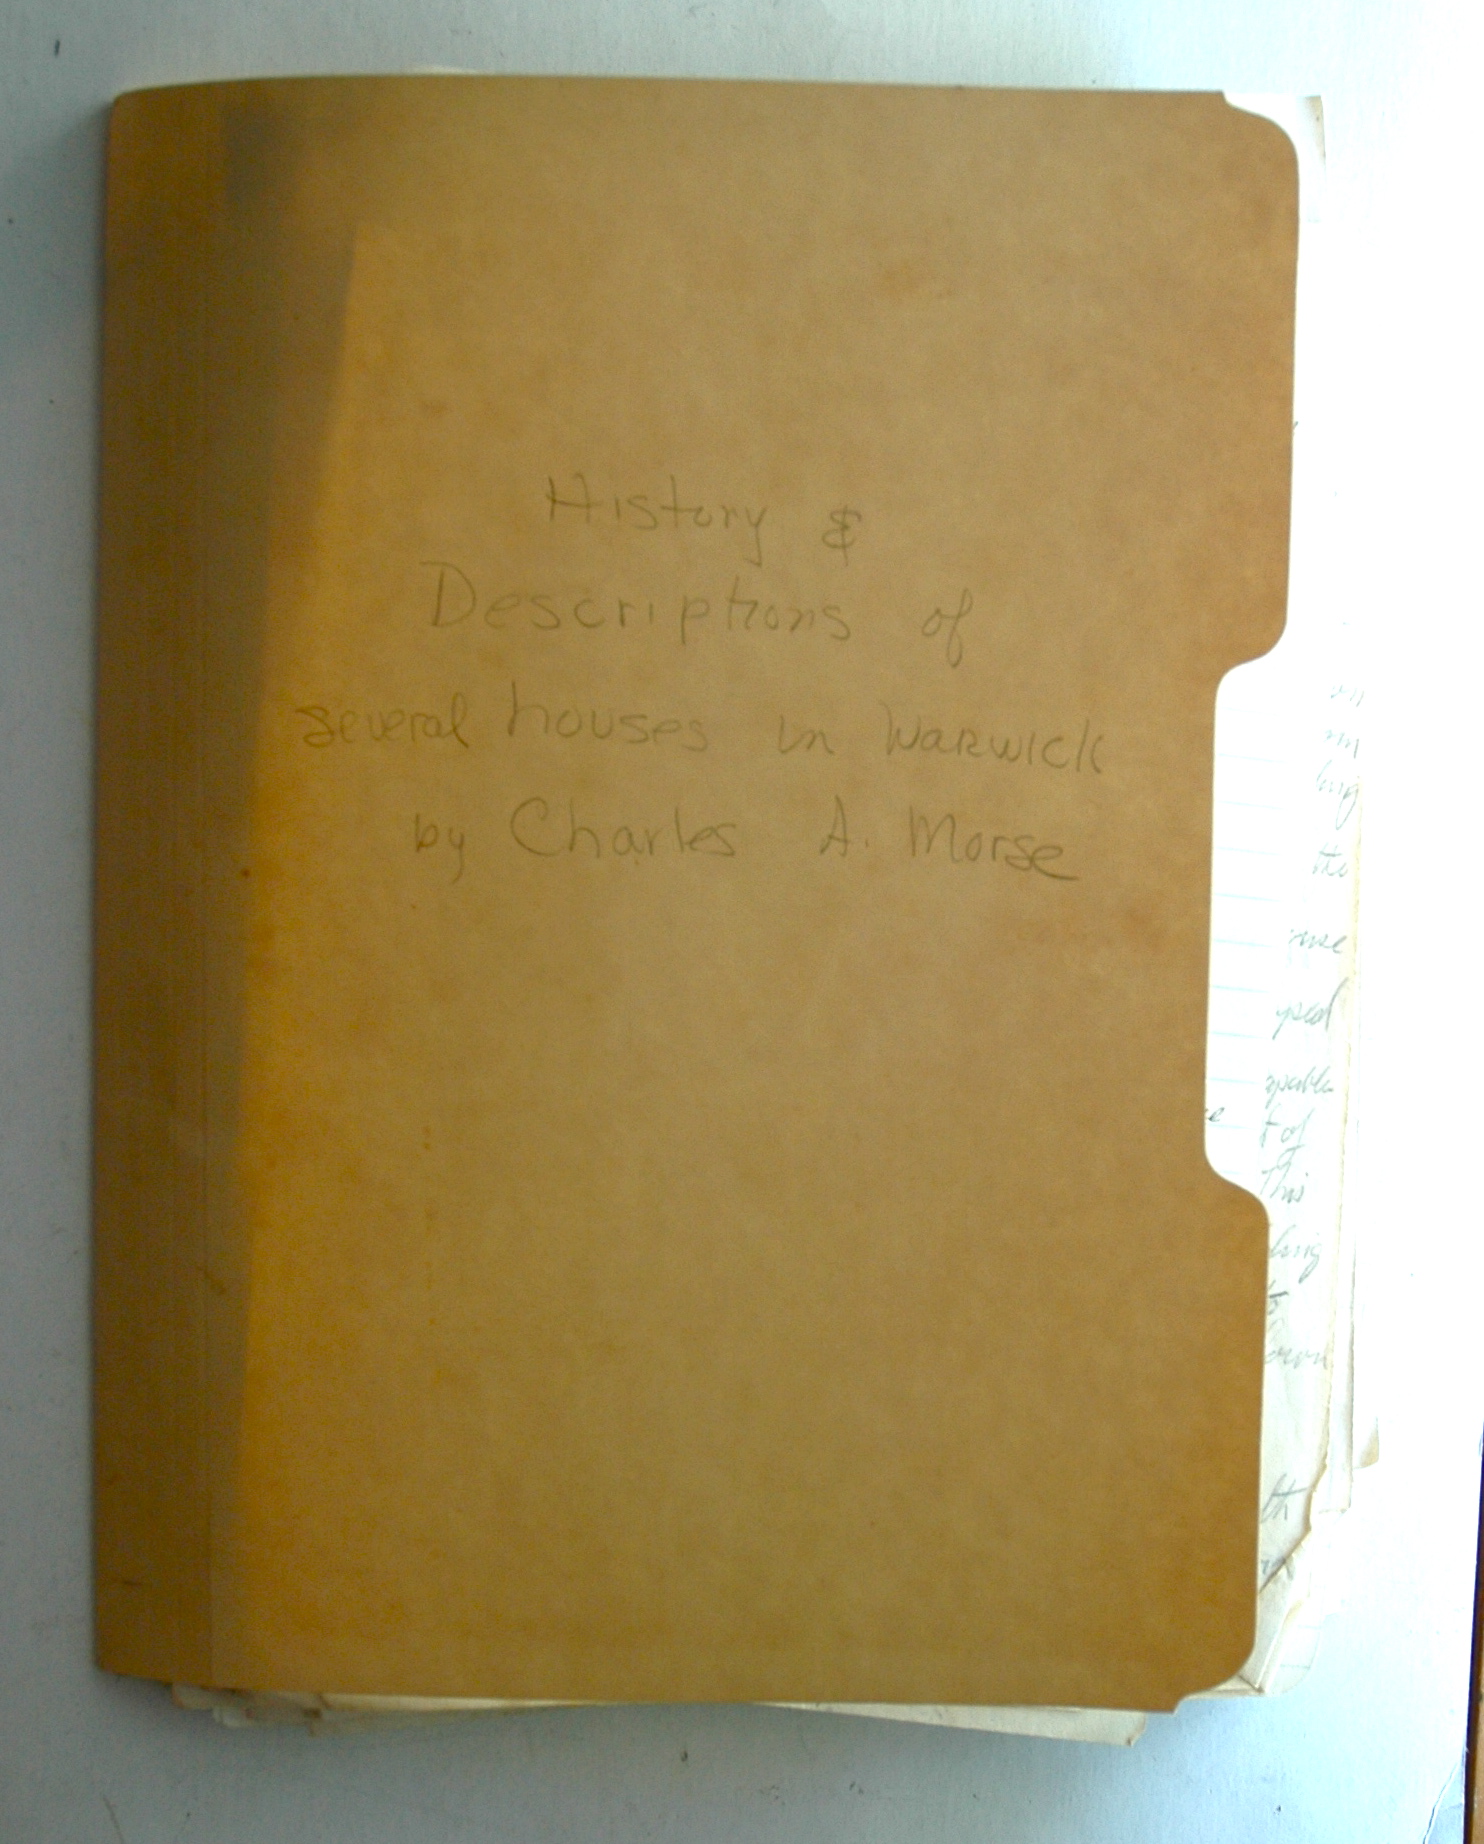 History &
Descriptions of
several houses in Warwick
by Charles A. Morse
This